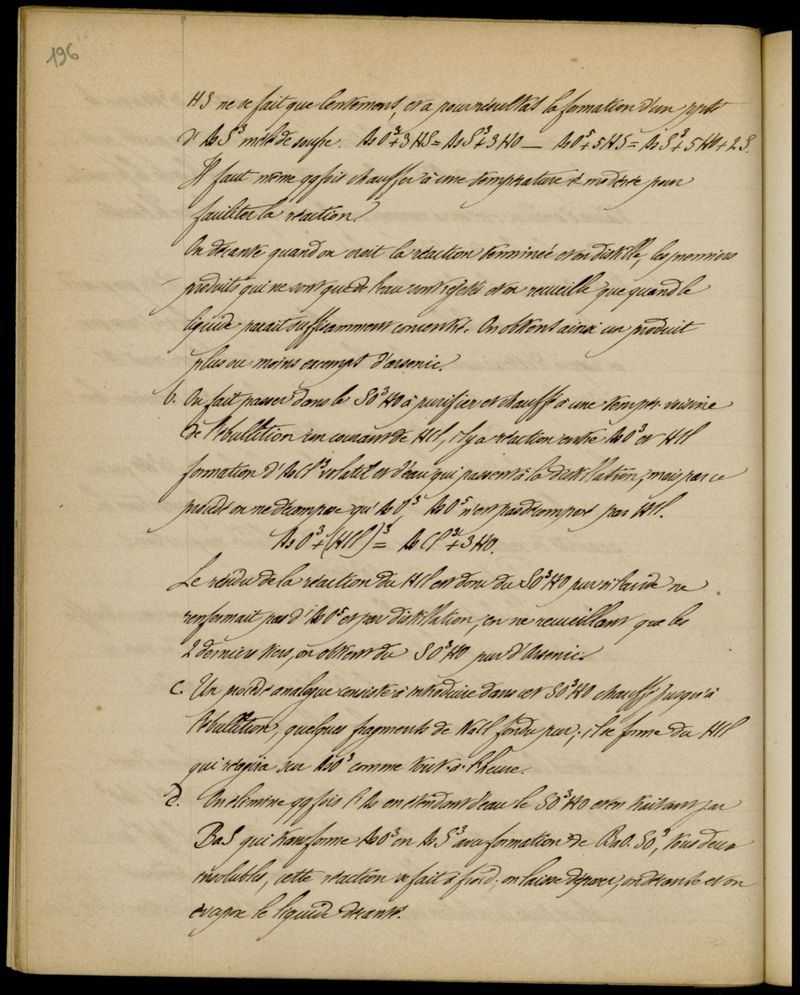 196
HS ne se fait que lentement, et a pour résultat la formation d'un ppté
d'AsS³ mêlé de soufre. AsO³+3HS=AsS³+3HO — AsO⁵+5HS=AsS³+5HO+2S.
Il faut même qqfois chauffer à une température modérée pour
faciliter la réaction.
On décante quand on croit la réaction terminée et on distille, les premiers
produits qui ne sont que de l'eau sont rejetés et on recueille que quand le
liquide parait suffisamment concentré. On obtient ainsi un produit
plus ou moins exempt d'arsenic.
b. On fait passer dans le SO³HO à purifier et chauffé à une tempre voisine
de l'ébullition un courant de HCl, il y a réaction entre AsO³ et HCl
formation d'AsCl³ volatil et d'eau qui passent à la distillation, mais par ce
procédé on ne décompose qu'AsO³ AsO⁵ n'est pas décomposé par HCl.
AsO³+(HCl)³= AsCl³+3HO.
Le résidu de la réaction du HCl est donc du SO³HO pur si l'acide ne
renfermait pas d'AsO⁵ et par distillation, en ne recueillant que les
2 derniers tiers, on obtient du SO³HO pur d'Arsenic.
c. Un procédé analogue consiste à introduire dans cet SO³HO chauffé jusqu'à
l'ébullition, quelques fragments de NaCl fondu pur; il se forme du HCl
qui réagira sur AsO³ comme tout-à-l'heure.
d. On élimine qqfois l'As en étendant d'eau le SO³HO et en traitant par
BaS qui transforme AsO³ en AsS³ avec formation de BaO.SO³, tous deux
insolubles, cette réaction se fait à froid; on laisse déposer, on décante et on
évapore le liquide décanté.